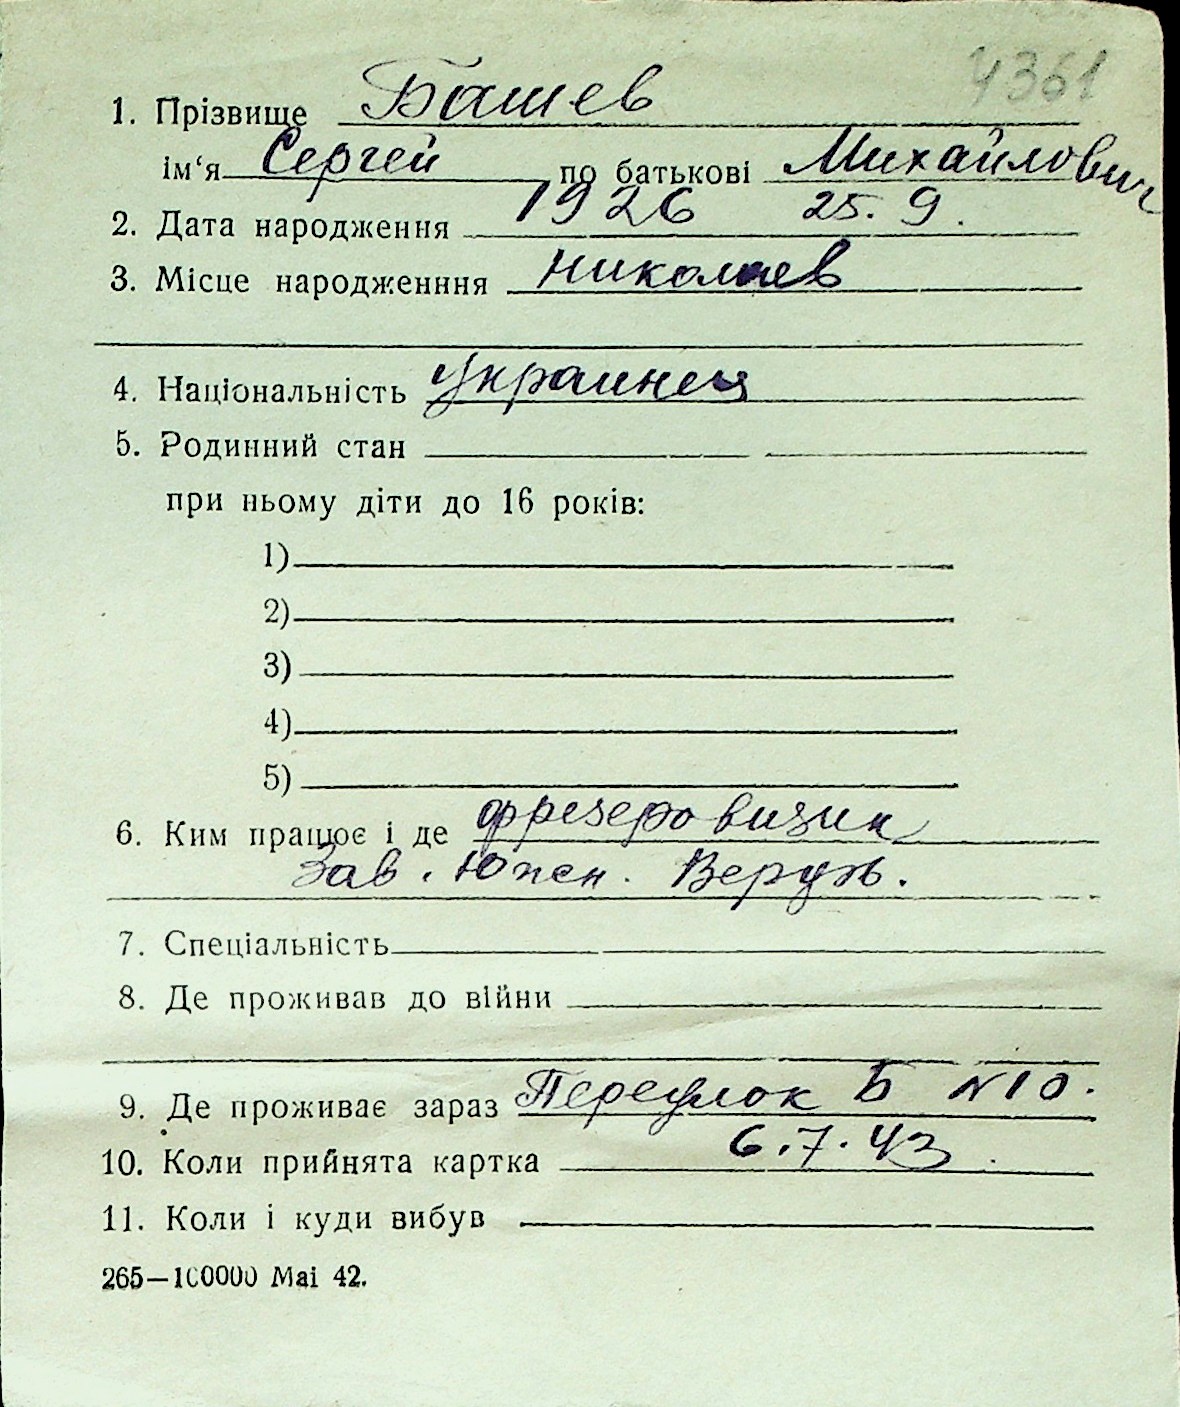 4361
1. Прізвище Башев
ім‘я Сергей по батькові Михайлович
2. Дата народження 1926 25. 9.
3. Місце народженння Николаев
4. Національність Украинец
5. Родинний стан
при ньому діти до 16 років:
1)
2)
3)
4)
5)
6. Ким працює і де
Зав. Южн. Верфь.
7. Спеціальність
8. Де проживав до війни
9. Де проживає зараз Переулок Б №10.
10. Коли прийнята картка 6.7.43
11. Коли і куди вибув
265—100000 Mai 42.